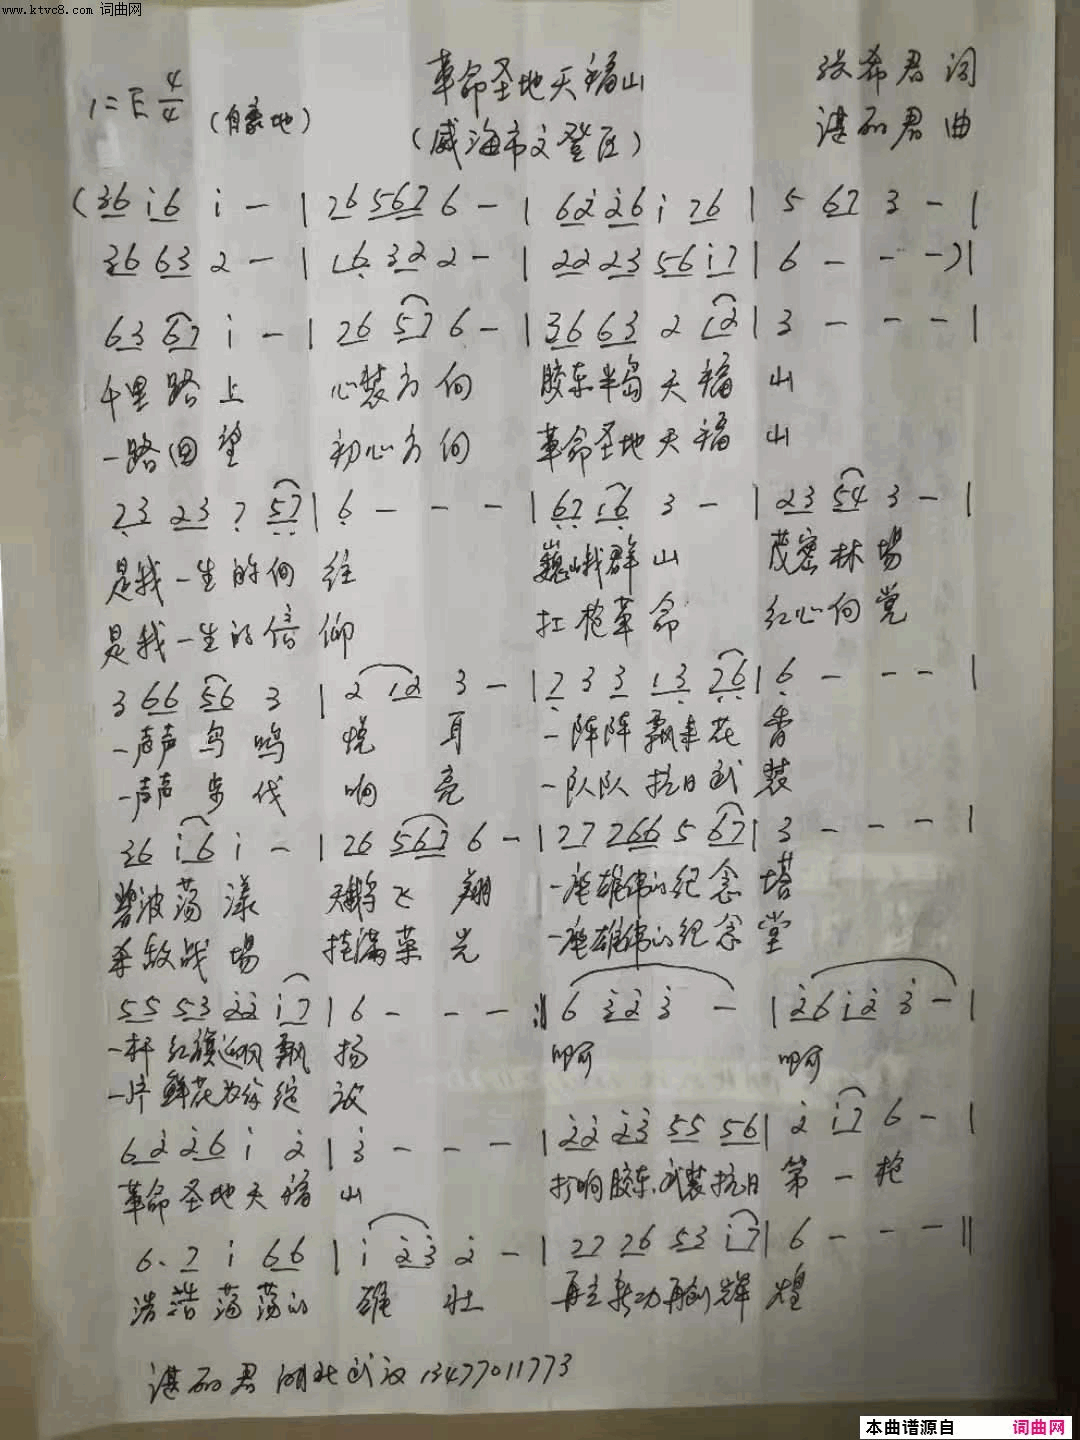 www.ktvc8.com 词曲网
革命圣地天福山
张希君 词
1=E 4/4 (自豪地)
(威海市文登区)
谌丽君 曲
(36 i6 i - | 76 567 6 - | 62 26 i 76 | 5 67 3 - |
36 63 2 - | 16 32 2 - | 22 23 56 i7 | 6 - - -)|
63 67 i - | 76 57 6 - | 36 63 2 12 | 3 - - - |
千里路上 心装方向 胶东半岛天福山
一路回望 初心方向 革命圣地天福山
23 23 7 57 | 6 - - - | 67 16 3 - | 23 54 3 - |
是我一生的向往 巍峨群山 茂密林场
是我一生的信仰 扛枪革命 红心向党
3 66 56 3 | 2 12 3 - | 7 3 3 13 76 | 6 - - - |
一声声鸟鸣悦耳 一阵阵飘来花香
一声声步伐响亮 一队队抗日武装
36 i6 i - | 76 567 6 - | 77 766 5 67 | 3 - - - |
碧波荡漾 天鹅飞翔 一座雄伟的纪念塔
杀敌战场 挂满荣光 一座雄伟的纪念堂
55 53 22 i7 | 6 - - - :|| 6 32 3 - | 26 i2 3 - |
一杆红旗迎风飘扬 啊 啊
一片鲜花为你绽放
62 26 i 2 | 3 - - - | 22 23 55 56 | 2 i7 6 - |
革命圣地天福山 打响胶东武装抗日第一枪
6. 7 i 66 | i 23 2 - | 77 76 53 i7 | 6 - - - ||
浩浩荡荡的雄壮 再立新功再创辉煌
谌丽君 湖北武汉 13477011773
本曲谱源自 词曲网